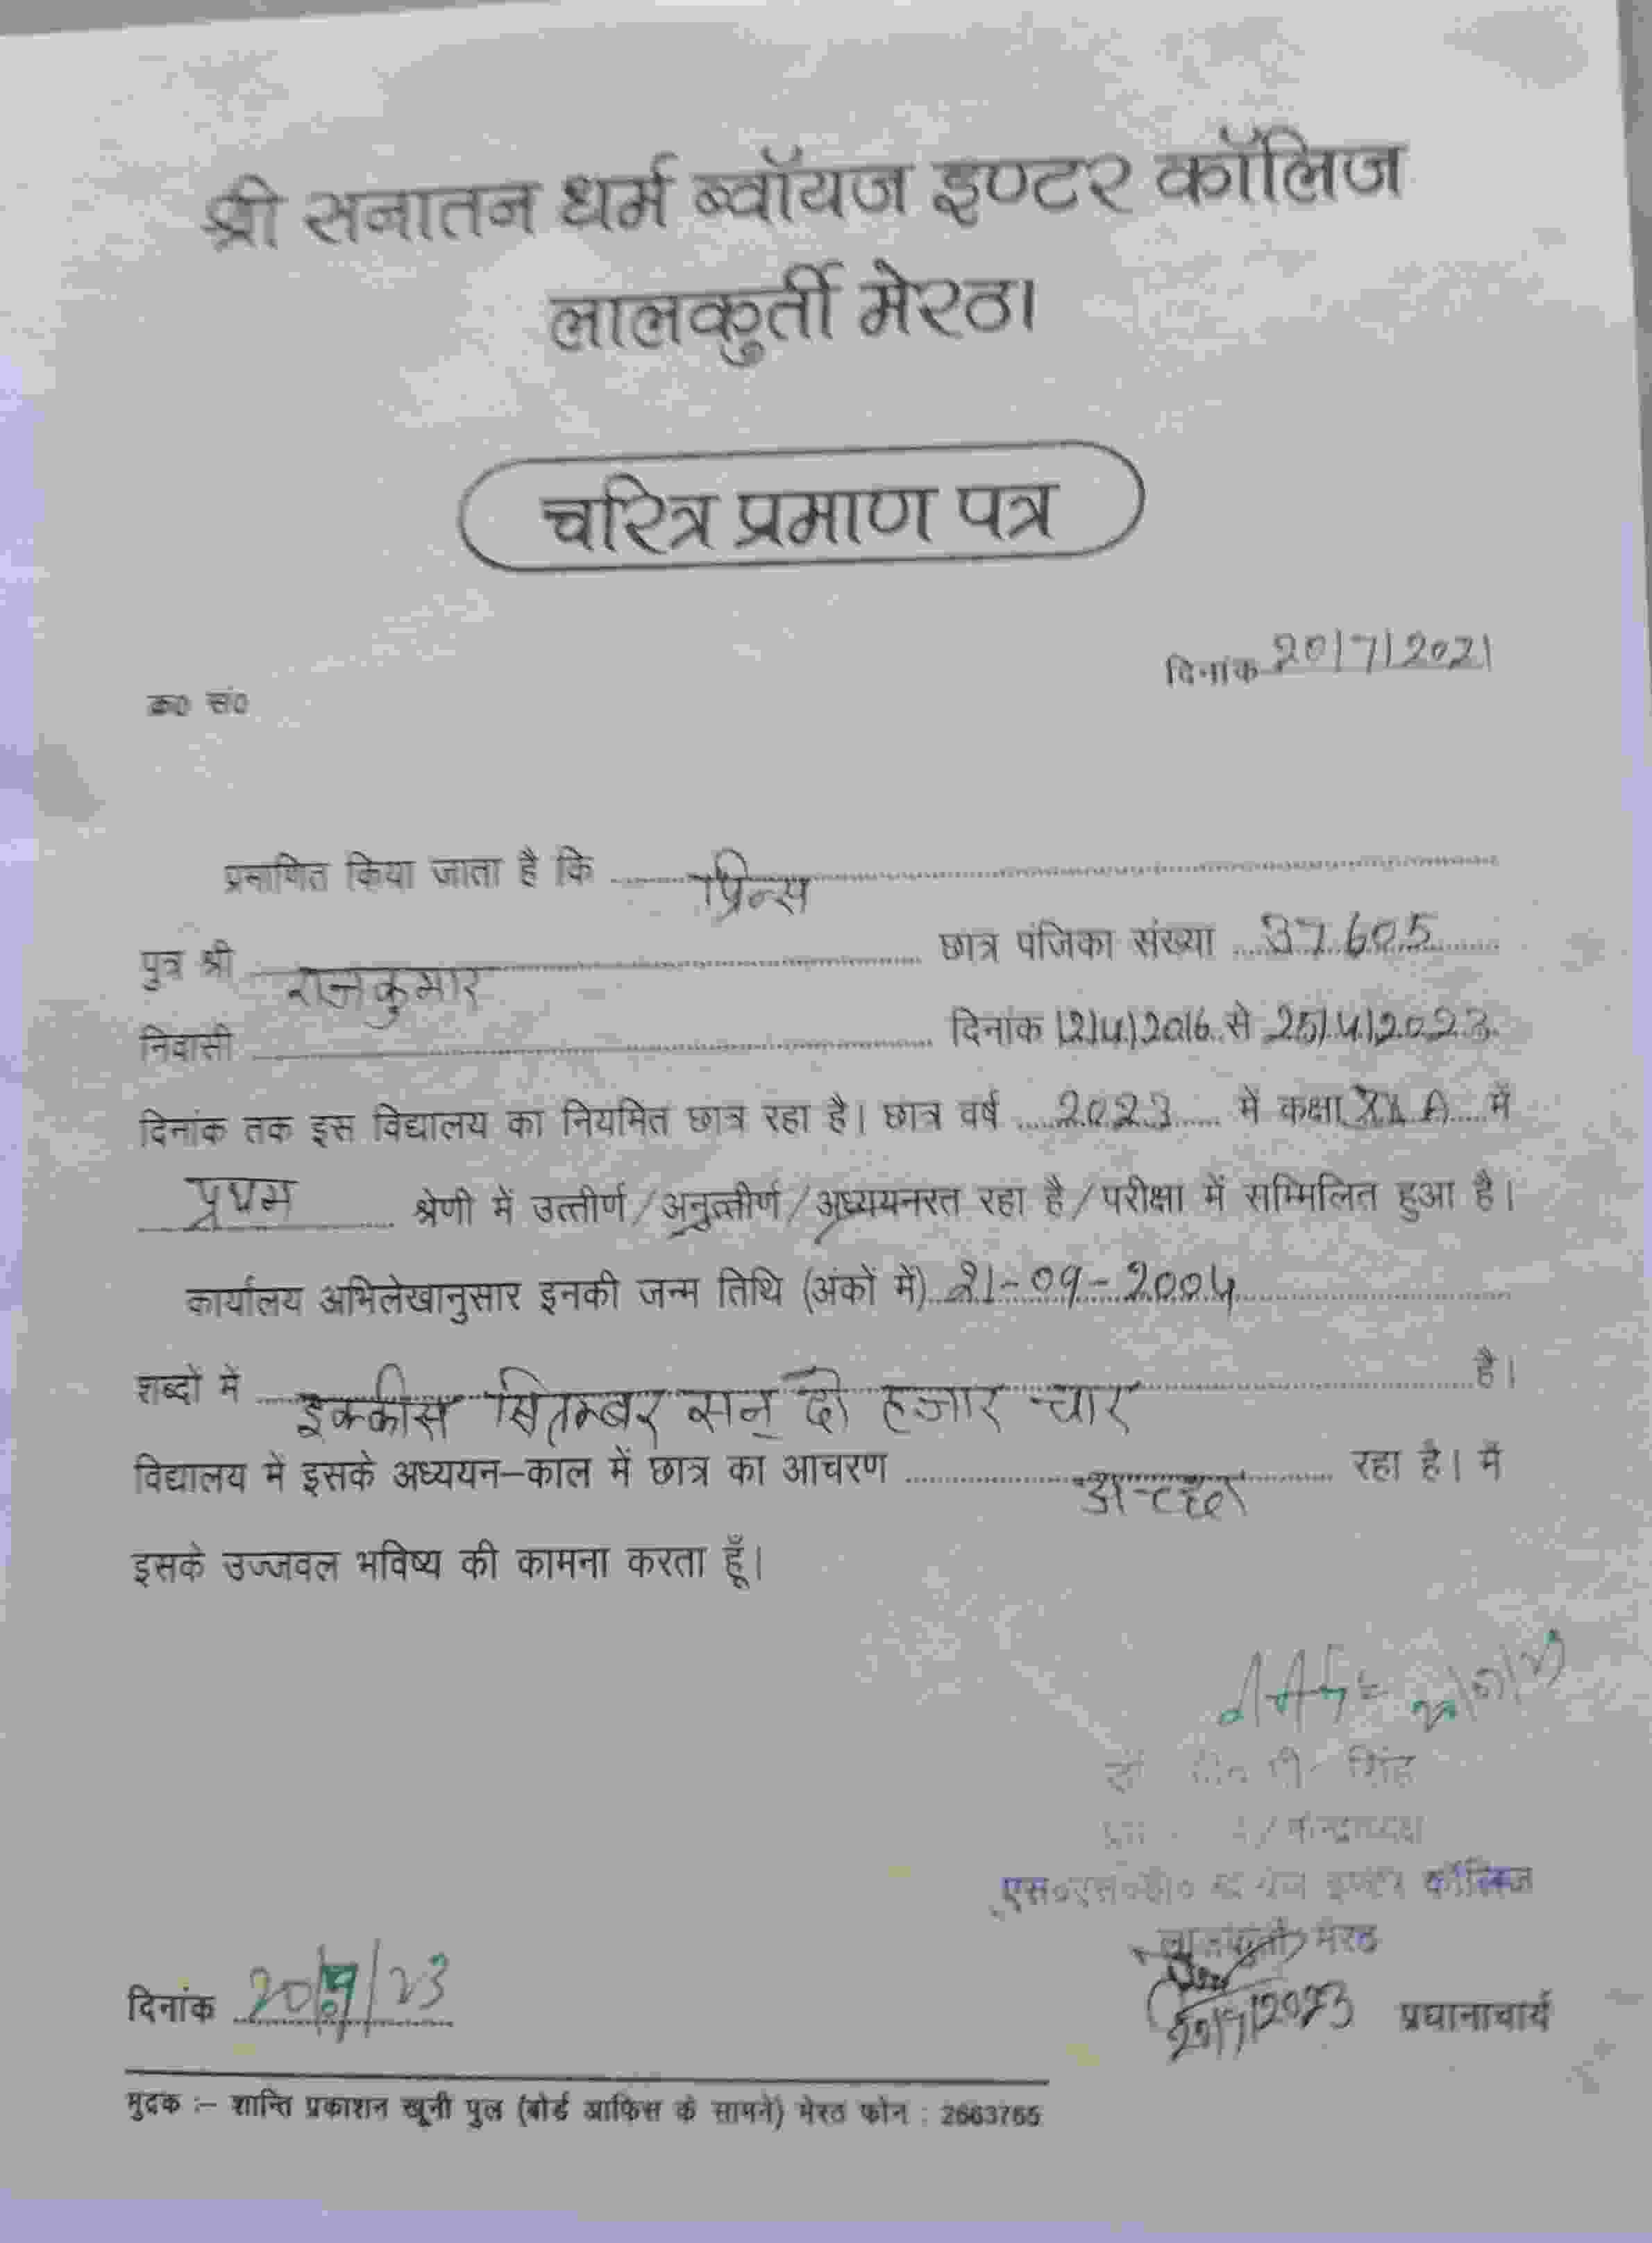 श्री सनातन धर्म ब्वॉयज इण्टर कॉलिज
लालकुर्ती मेरठ।
चरित्र प्रमाण पत्र
दिनांक 20/7/2021
क्र० सं०
प्रमाणित किया जाता है कि प्रिन्स
पुत्र श्री राजकुमार छात्र पंजिका संख्या 37605
निवासी दिनांक 12/4/2016 से 25/4/2023
दिनांक तक इस विद्यालय का नियमित छात्र रहा है। छात्र वर्ष 2023 में कक्षा A में
प्रथम श्रेणी में उत्तीर्ण/अनुत्तीर्ण/अध्ययनरत रहा है/परीक्षा में सम्मिलित हुआ है।
कार्यालय अभिलेखानुसार इनकी जन्म तिथि (अंकों में) 21-09-2004
शब्दों में इक्कीस सितम्बर सन् दो हजार चार है।
विद्यालय में इसके अध्ययन-काल में छात्र का आचरण अच्छा रहा है। मैं
इसके उज्जवल भविष्य की कामना करता हूँ।
सिंह
कॉलिज
मेरठ
दिनांक 20/7/23
20/7/2023 प्रधानाचार्य
मुद्रक :- शान्ति प्रकाशन खूनी पुल (बोर्ड आफिस के सामने) मेरठ फोन : 2663765